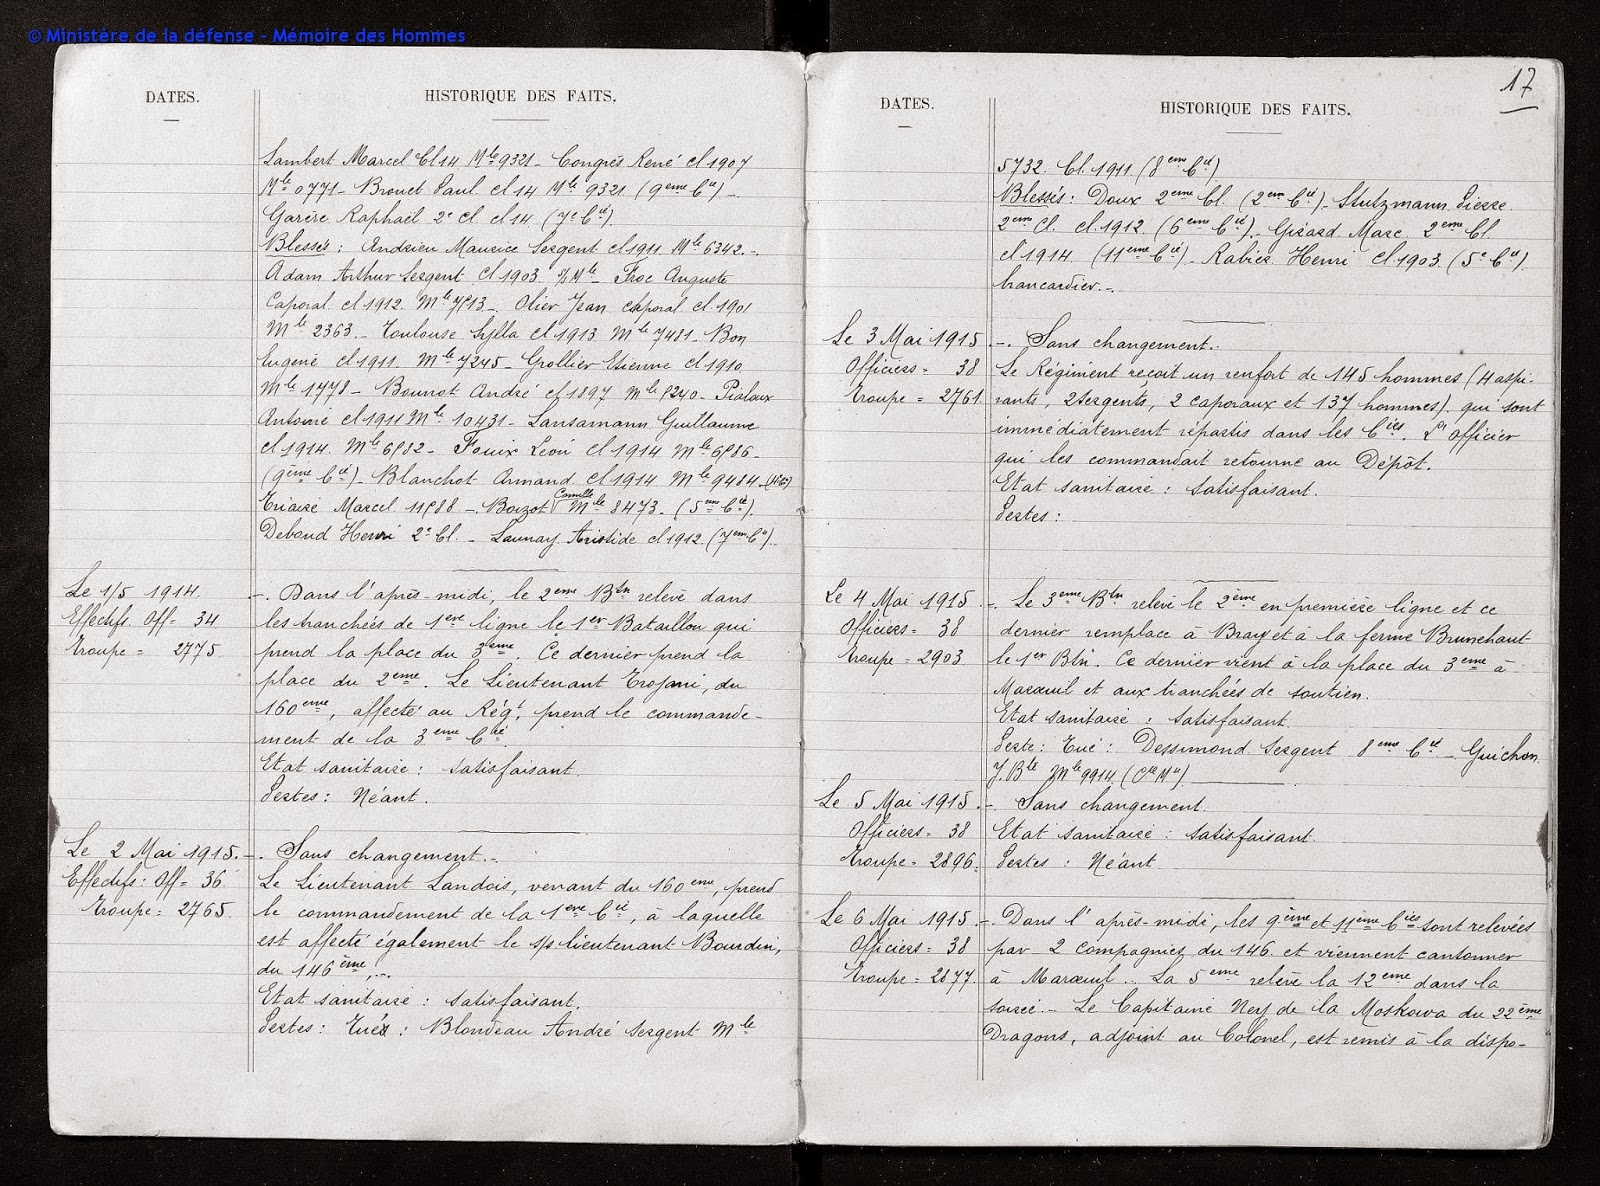 © Ministère de la défense - Mémoire des Hommes
DATES.
HISTORIQUE DES FAITS.
Lambert Marcel Cl 14 Mle 9321 - Congrès René cl 1907
Mle 0771 - Brouet Paul cl 14 Mle 9321 (9eme Cie) -
Garère Raphaël 2e cl. cl 14 (7e Cie)
Blessés : Andrieu Maurice Sergent cl 1911 Mle 6342. -
Adam Arthur Sergent cl 1903 s/Mle - Froc Auguste
Caporal cl 1912 Mle - Olier Jean caporal cl 1901
Mle 2363 - Toulouse Sylla cl 1913 Mle 7481 - Bon
Eugène cl 1911. Mle 7245 - Grollier Etienne cl 1910
Mle 1778 - Bounot André cl 1897 Mle 8240 - Pialoux
Antoine cl 1911 Mle 10431 - Lansamann Guillaume
cl 1914. Mle 6982 - Fouix Léon cl 1914 Mle 6986 -
(9ème Cie) - Blanchot Armand cl 1914 Mle 9484 -
Triaire Marcel 11988 - Bozot Camille Mle 8473 - (5eme Cie)
Deboud Henri 2e Cl. - Launay Aristide cl 1912 (7eme Cie)
Le 1/5 1914.
Effectifs. Off = 34
Troupe = 2775
-. Dans l'après-midi, le 2eme Btn relève dans
les tranchées de 1ere ligne le 1er Bataillon qui
prend la place du 3eme. Ce dernier prend la
place du 2eme. Le Lieutenant Trojani, du
160eme, affecté au Régt, prend le commande-
ment de la 3eme Cie
Etat sanitaire : satisfaisant.
Pertes : Néant.
Le 2 Mai 1915. -
Effectifs : Off = 36
Troupe = 2765.
. Sans changement. -
Le Lieutenant Landois, venant du 160eme, prend
le commandement de la 1ere Cie, à laquelle
est affecté également le s/s lieutenant Bourdin,
du 146ème, -.
Etat sanitaire : satisfaisant.
Pertes : Tués : Blondeau André Sergent Mle
17
DATES.
HISTORIQUE DES FAITS.
5732. Cl. 1911 (8eme Cie)
Blessés : Doux 2eme Cl. (2eme Cie) - Stutzmann Pierre
2eme Cl. cl. 1912 (6eme Cie) - Girard Marc 2eme Cl.
cl 1914 (11eme Cie) - Rabier Henri cl 1903 (5e Cie)
brancardier. -
Le 3 Mai 1915
Officiers = 38
Troupe = 2761.
-. Sans changement. -
Le Régiment reçoit un renfort de 145 hommes (4 aspi-
rants, 2 sergents, 2 caporaux et 137 hommes) qui sont
immédiatement répartis dans les Cies. L'officier
qui les commandait retourne au Dépôt.
Etat sanitaire : satisfaisant.
Pertes :
Le 4 Mai 1915
Officiers = 38
Troupe = 2903
-. Le 3eme Btn relève le 2eme en première ligne et ce
dernier remplace à Bray et à la ferme Brunehaut
le 1er Btn. Ce dernier vient à la place du 3eme à
Maroeuil et aux tranchées de soutien.
Etat sanitaire : satisfaisant
Perte : Tué : Dessimond Sergent 8eme Cie - Guichon
J. Bte Mle 9914 (Cie Mse)
Le 5 Mai 1915
Officiers = 38
Troupe = 2896.
-. Sans changement.
Etat sanitaire : satisfaisant.
Pertes : Néant
Le 6 Mai 1915
Officiers = 38
Troupe = 2877.
-. Dans l'après-midi, les 9ème et 11ème Cies sont relevées
par 2 compagnies du 146. et viennent cantonner
à Maroeuil. . La 5eme relève la 12eme dans la
soirée. - Le Capitaine Ney de la Moskowa du 22ème
Dragons, adjoint au Colonel, est remis à la dispo-